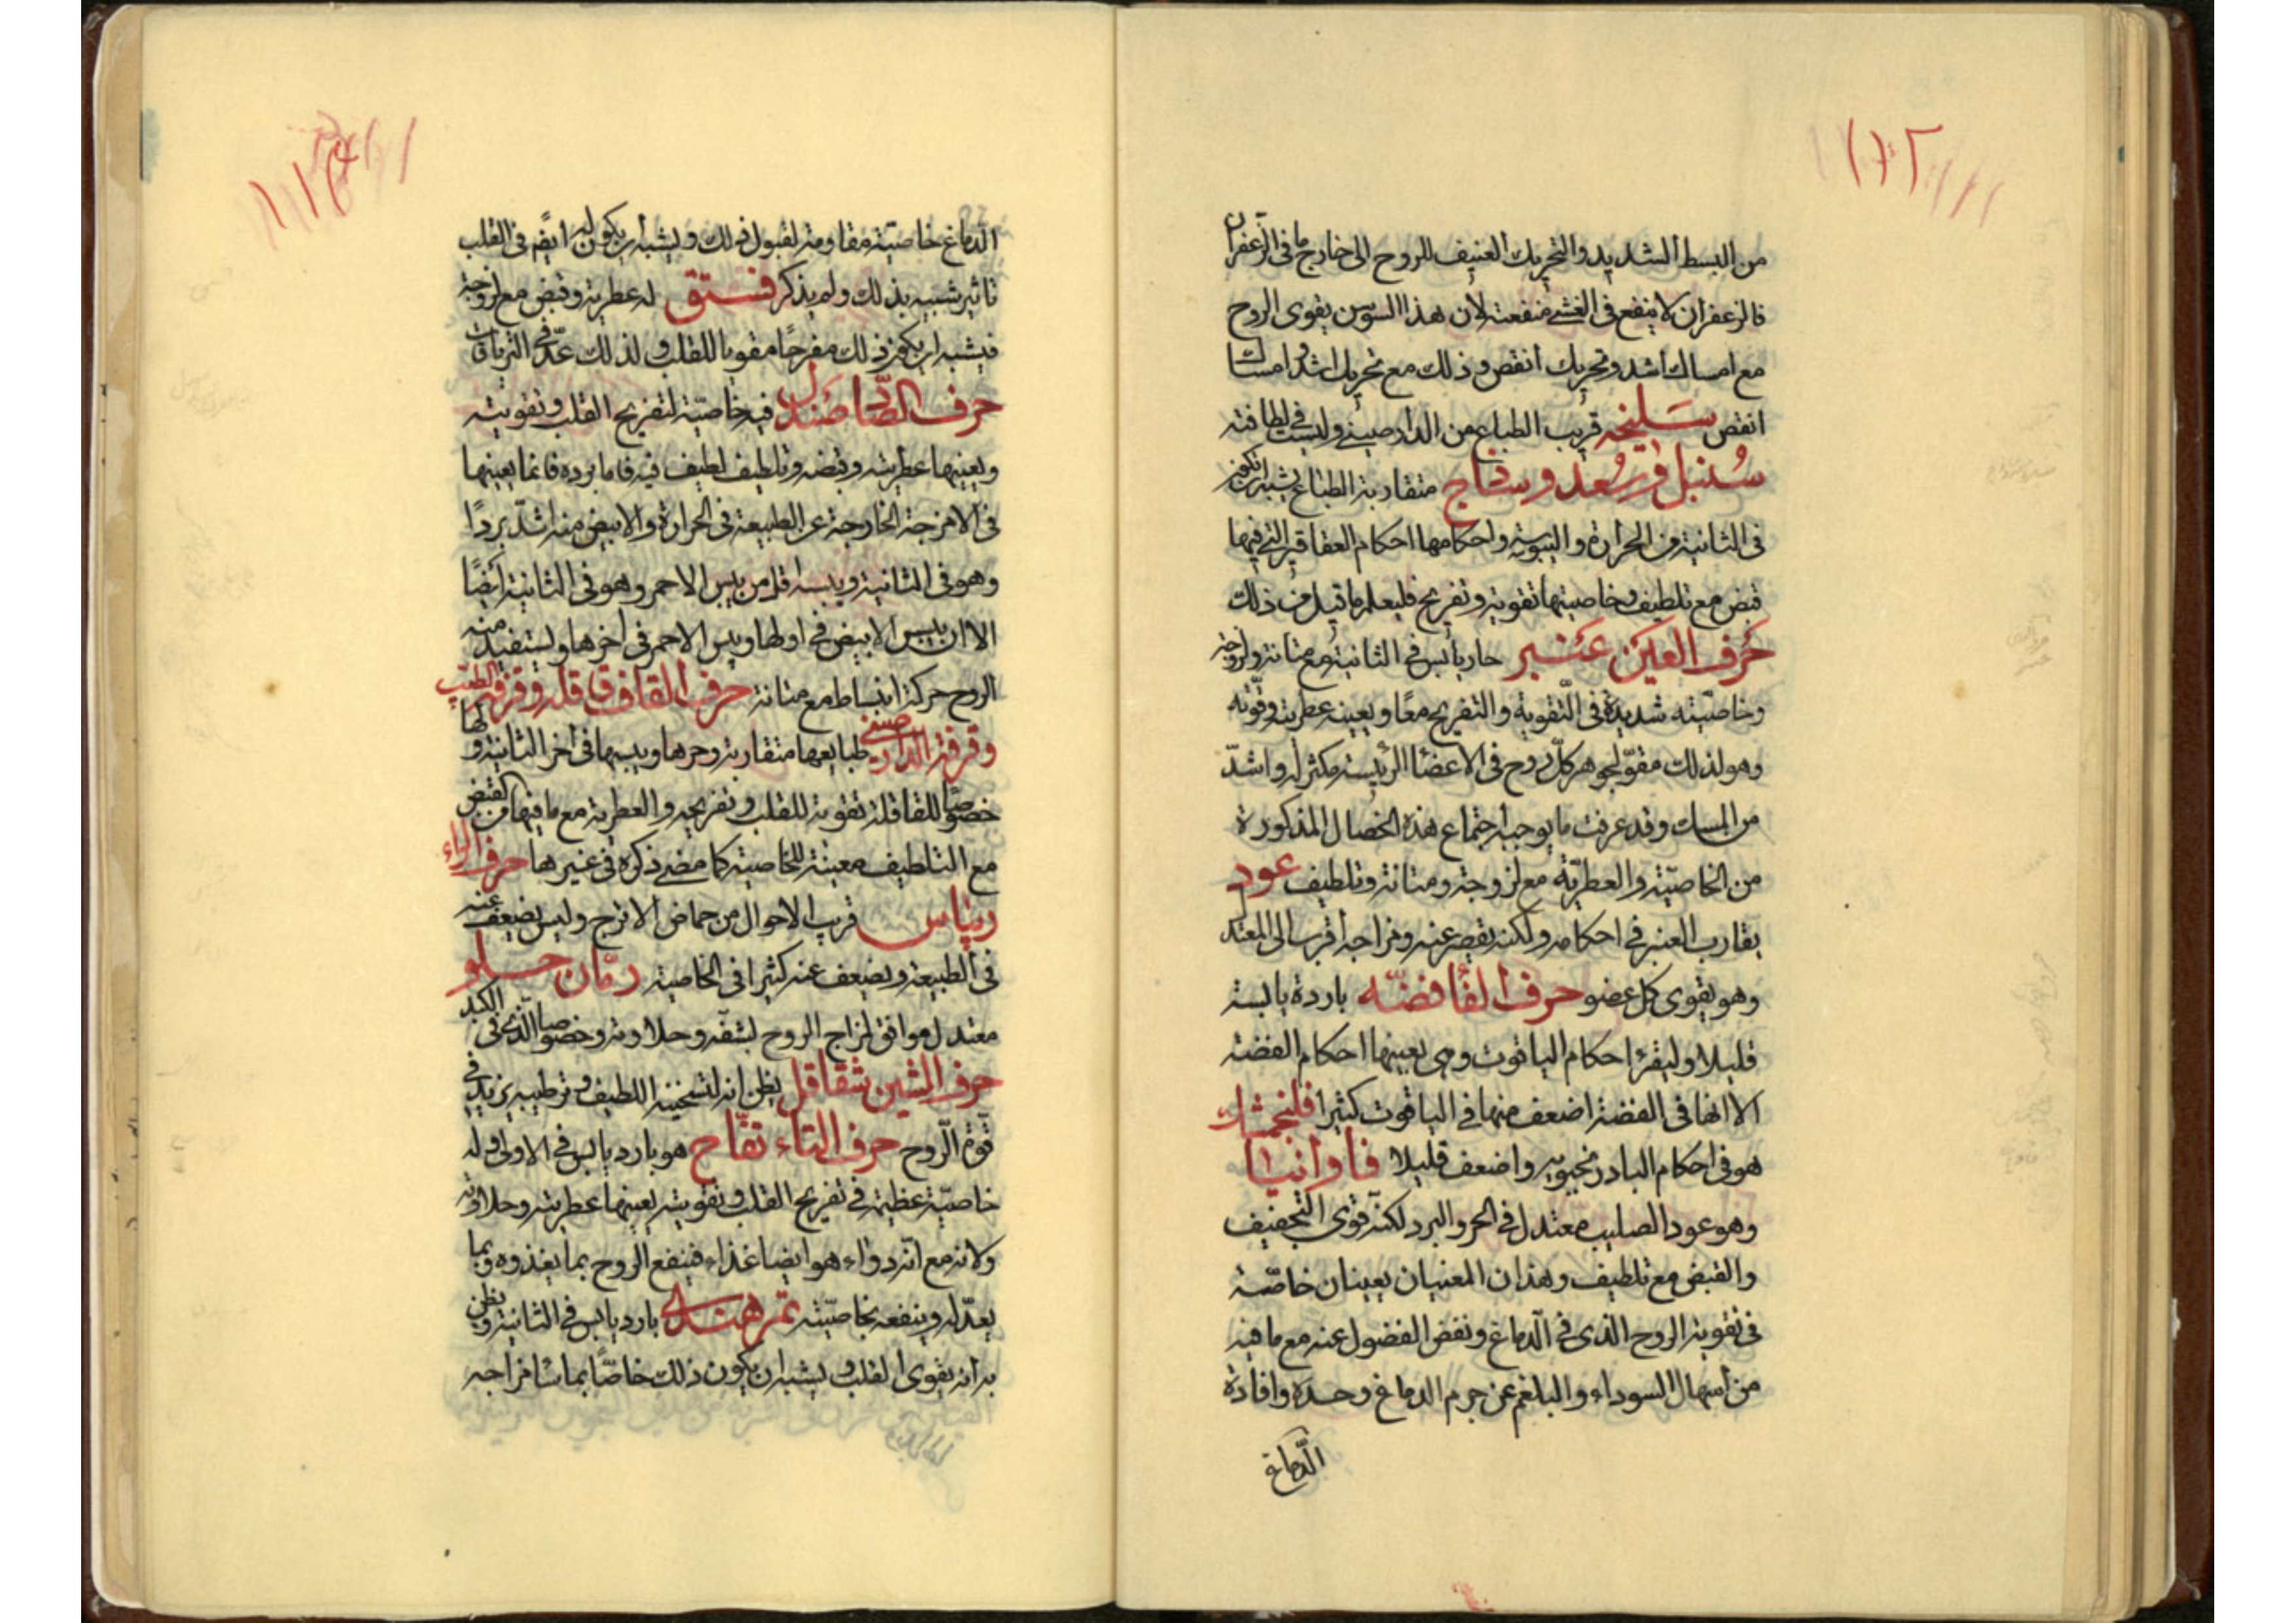 من البسط الشديد والتحريك العنيف للروح الى خارج ما فى الزعفران
فالزعفران لا ينفع فى الغشى منفعته لأن هذا السوسن يقوى الروح
مع امساك اشد وتحريك انقص وذلك مع تحريك اشد وامساك
انقص سليخه قريب الطباع من الدارصينى وليست فى لطافته
سنبل وسعد وساذج متقاربة الطباع يشبه ان تكون
فى الثانية من الحرارة واليبوسة واحكامها احكام العقاقير التى فيها
قبض مع تلطيف وخاصيتها تقوية وتفريح فليعلم ما قيل من ذلك
حرف العين عنبر حار يابس فى الثانية مع متانة ولزوجة
وخاصّيته شديدة فى التّقوية والتفريح معًا ويعينه عطريته وقوّته
وهو لذلك مقوّ لجوهر كلّ روح فى الاعضا الرئيسة مكثر له واشدّ
من المسك وقد عرفت ما يوجبه اجتماع هذه الخصال المذكورة
من الخاصّية والعطريّة مع لزوجة ومتانة وتلطيف عود
يقارب العنبر فى احكامه ولكنه يقصر عنه ومزاجه أقرب الى المعتد
وهو يقوى كل عضو حرف الفا فضّه باردة يابسة
قليلا وليقرأ احكام الياقوت وهى بعينها احكام الفضة
الا انها فى الفضة اضعف منها فى الياقوت كثيرا فلنجمشك
هو فى احكام البادرنجبويه واضعف قليلا فاوانيا
وهو عود الصليب معتدل فى الحر والبرد لكنه قوى التجفيف
والقبض مع تلطيف وهذان المعنيان يعينان خاصّية
فى تقوية الروح الذى فى الدماغ ونفض الفضول عنه مع ما فيه
من اسهال السوداء والبلغم عن جرم الدماغ وحده وافادة
الدّماغ
١١٢
الدّماغ خاصيّة مقاومة لقبول ذلك ويشبه ان يكون له ايضًم فى القلب
تاثير شبيه بذلك ولم يذكر فستق له عطرية وقبض مع لزوجة
فيشبه ان يكون ذلك مفرحًا مقويا للقلب ولذلك عدّ فى الترياقات
حرف الصّاد صندل فيه خاصيّة لتفريح القلب وتقويته
ويعينها عطريته وقبضه وتلطيف لطيف فيه فاما برده فانما يعينها
فى الامزجة الخارجة عن الطبيعة فى الحرارة والابيض منه اشدّ بردًا
وهو فى الثانية ويبسه اقل من يبس الاحمر وهو فى الثانية ايضًا
الا ان يبس الابيض فى اولها ويبس الاحمر فى اخرها ويستفيد منه
الروح حركة انبساط مع متانة حرف القاف قاقله وقرفة الطيب
وقرفة الدارصينى طبايعها متقاربة وحرها ويبسها فى اخر الثانية ولها
خصوصًا للقاقلة تقوية للقلب وتفريحه والعطرية مع ما فيها من القبض
مع التلطيف معينة للخاصية كما مضى ذكره فى غيرها حرف الراء
ريباس قريب الاحوال من حماض الاترج وليس يضعف عنه
فى الطبيعة ويضعف عنه كثيرا فى الخاصية رمّان حلو
معتدل موافق لمزاج الروح لشفه وحلاوته وخصوصا الّذى فى الكبد
حرف الشين شقاقل يظن انه لتسخينه اللطيف وترطيبه يزيد فى
قوّة الرّوح حرف التاء تفّاح هو بارد يابس فى الاولى وله
خاصيّة عظيمة فى تفريح القلب وتقويته يعينها عطريته وحلاوته
ولانه مع انّه دواء هو ايضا غذاء فينفع الروح بما يغذوه وبما
يعدّله وينفعه بخاصّيته تمر هندى بارد يابس فى الثانية ويظن
به انه يقوى القلب ويشبه ان يكون ذلك خاصًّا بما ساء مزاجه